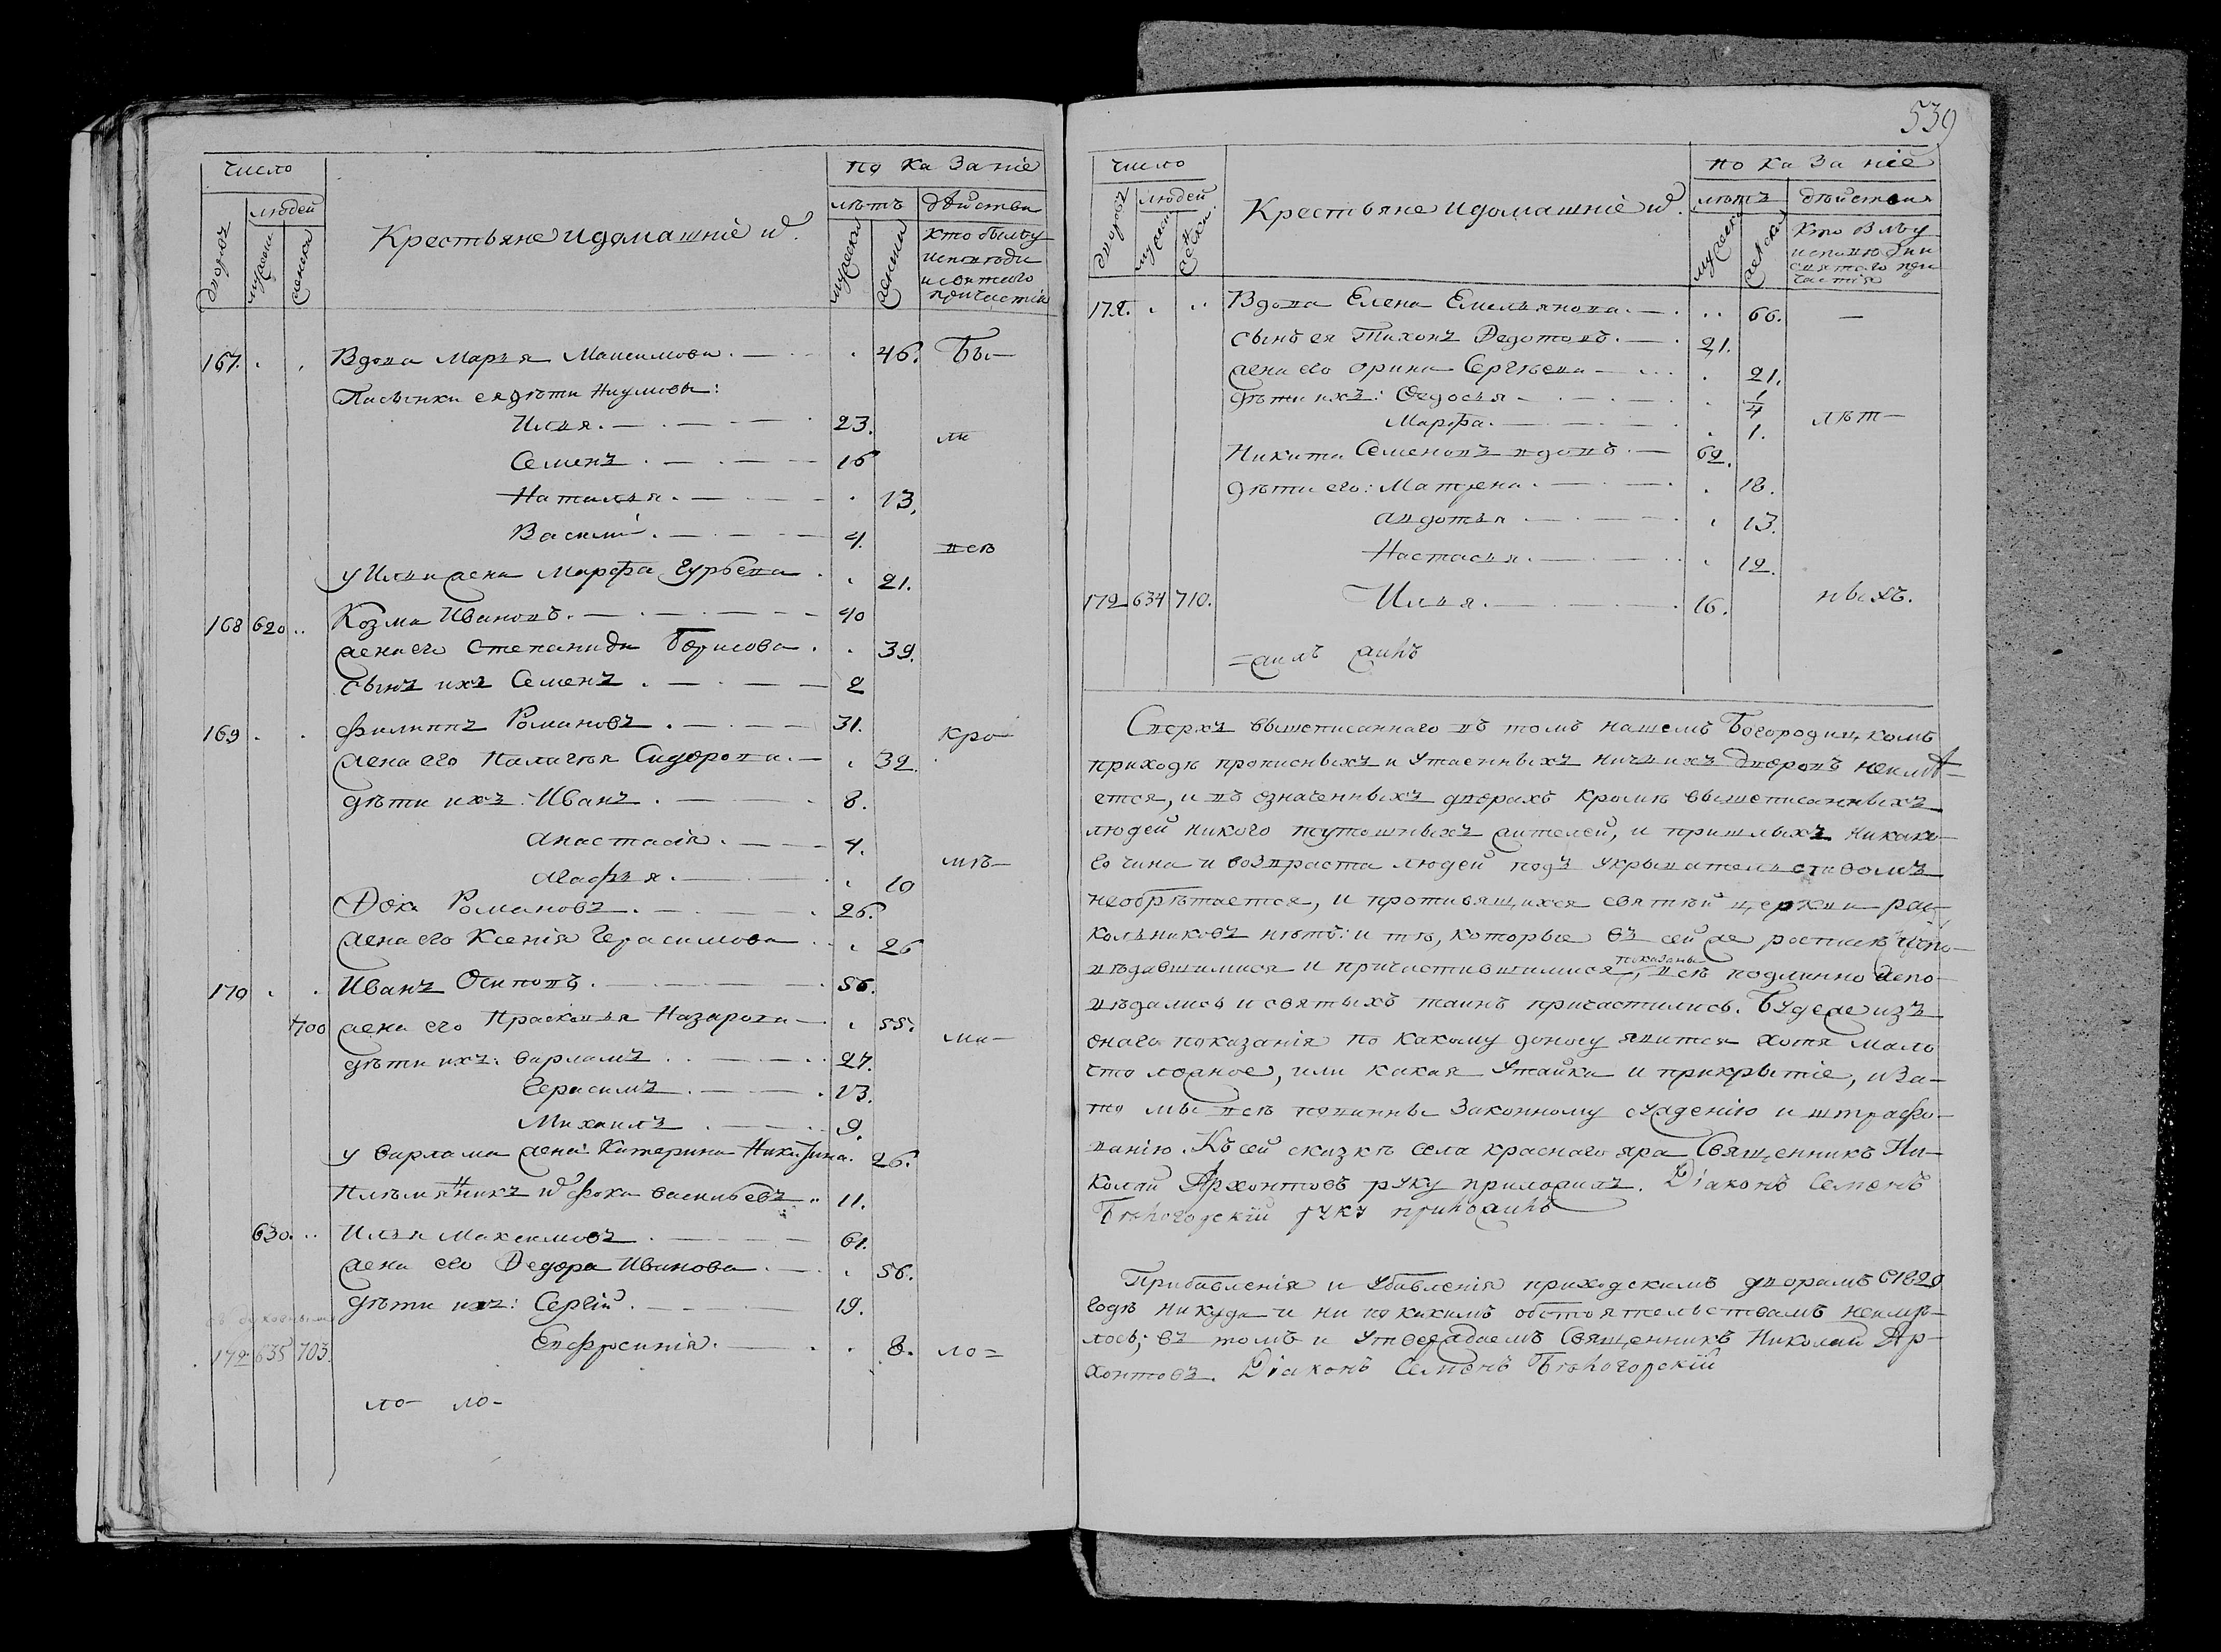 число
по ка за ніе
людей
лѣтъ
дѣйства
дворовъ
мужеска
женска
Крестьяне и домашніе ихъ.
мужеска
женска
кто былъ у
исповѣди
и святаго
причастія
167. Вдова Марья Максимова. 46. Бы—
Пасынки ея дѣти Наумовы:
Илья. 23. ли
Семенъ. 16
Наталья. 13.
Василій. 4. всѣ
у Ильи жена Марфа Гурьева. 21.
168 620 Козма Ивановъ. 40
жена его Степанида Борисова. 39.
сынъ ихъ Семенъ. 2
169 Филиппъ Романовъ. 31. кро
жена его Палагея Сидорова. 32.
дѣти ихъ: Иванъ. 8.
Анастасія. 4.
мѣ—
Агафья. 10
Фока Романовъ. 26.
жена его Ксенія Герасимова 26
170 Иванъ Осиповъ. 56.
700 жена его Прасковья Назарова — 55. ма—
дѣти ихъ: Варламъ 27.
Герасимъ. 13.
Михаилъ 9.
у Варлама жена Катерина Никитина. 26.
Племянникъ их Фока Васильевъ 11.
630. Илья Максимовъ. 61.
жена его Федора Иванова. 56.
дѣти ихъ: Сергій. 19.
Евфросинія. 8. ло=
172 635 703.
ло— ло—
539
число
по ка за ніе
людей
лѣтъ
дѣйствія
дворовъ
мужеска
женска
Крестьяне и домашніе ихъ.
мужеска
женска
кто былъ у
исповѣди и
святаго при
частія
172. Вдова Елена Емельянова. 66. —
сынъ ея Тихонъ Федотовъ. 21.
жена его Орина Сергѣева — 21.
дѣти ихъ: Федосья 1/4
Марфа. 1. лѣт—
Никита Семеновъ вдовъ. 62.
дѣти его: Матрена. 18.
Авдотья 13.
Настасья. 12.
172 634 710. Илья. 16. ныхъ.
=жилъ жинъ
Сверхъ вышеписаннаго въ томъ нашемъ Богородицкомъ
приходѣ прописныхъ и утаенныхъ ничьихъ дворовъ неимѣ—
ется, и въ означенныхъ дворахъ кромѣ вышеписанныхъ
людей никого тутошныхъ жителей, и пришлыхъ никако—
го чина и возраста людей подъ укрывательствомъ
необрѣтается, и противящихся святѣй церкви рас—
кольниковъ нѣтъ: и тѣ, которые въ сей же росписѣ испо—
вѣдавшимися и причастившимися показаны, всѣ подлинно испо—
вѣдались и святыхъ таинъ причастились. Буде же изъ
онаго показанія по какому доносу явится хотя мало
что ложное, или какая утайка и прикрытіе, и за—
то мы всѣ повинны законному сужденію и штрафо—
ванію. Къ сей сказкѣ села краснаго яра Священникъ Ни—
колай Архонтовъ руку приложилъ. Діаконъ Семенъ
Бѣлогорскій руку приложилъ
Прибавленія и убавленія приходскимъ дворамъ в 1820
годѣ никуда и ни по какимъ обстоятельствамъ неимѣ—
лось; въ томъ и утверждаемъ Священникъ Николай Ар—
хонтовъ. Діаконъ Семенъ Бѣлогорскій